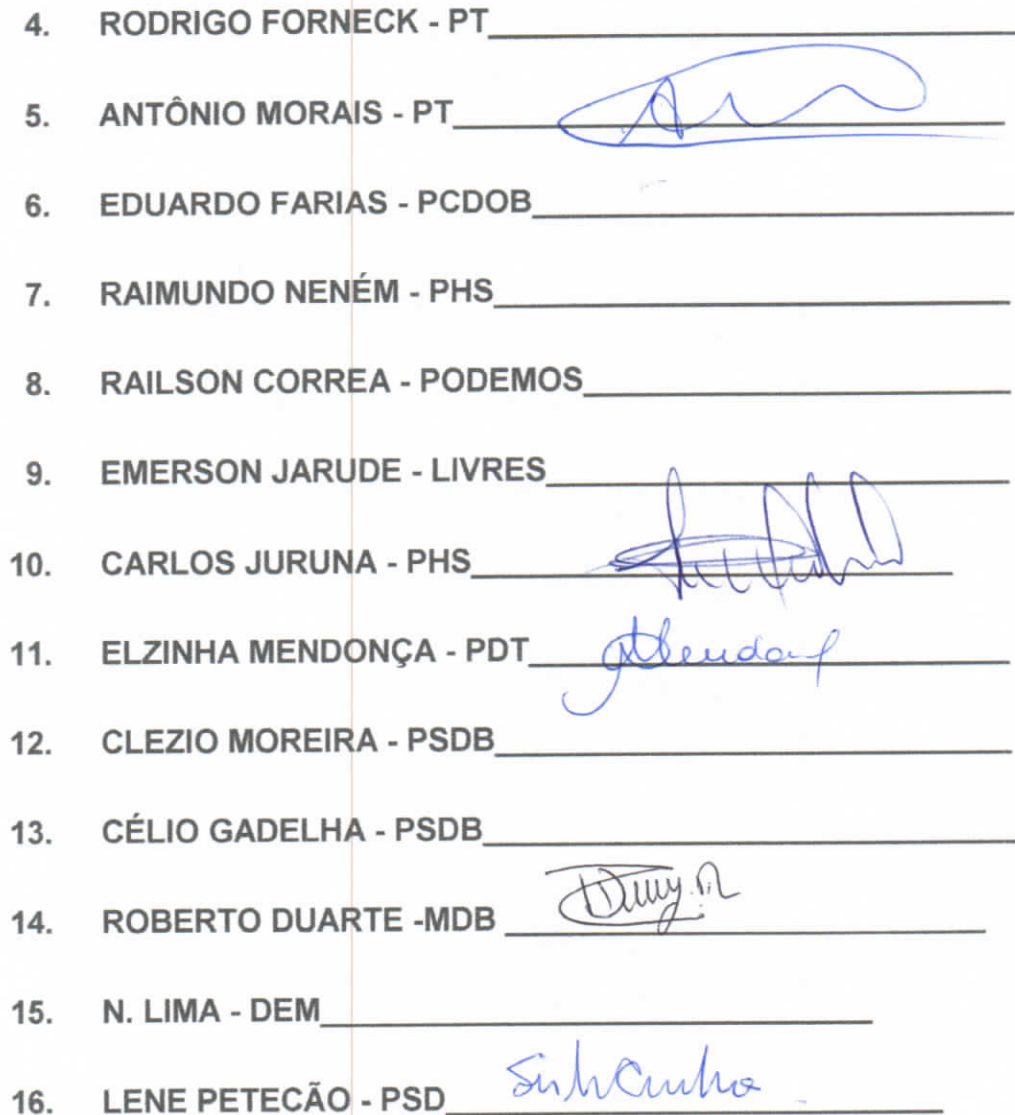 4. RODRIGO FORNECK - PT
5. ANTÔNIO MORAIS - PT
6. EDUARDO FARIAS - PCDOB
7. RAIMUNDO NENÉM - PHS
8. RAILSON CORREA - PODEMOS
9. EMERSON JARUDE - LIVRES
10. CARLOS JURUNA - PHS
11. ELZINHA MENDONÇA - PDT
12. CLEZIO MOREIRA - PSDB
13. CÉLIO GADELHA - PSDB
14. ROBERTO DUARTE -MDB
15. N. LIMA - DEM
16. LENE PETECÃO - PSD